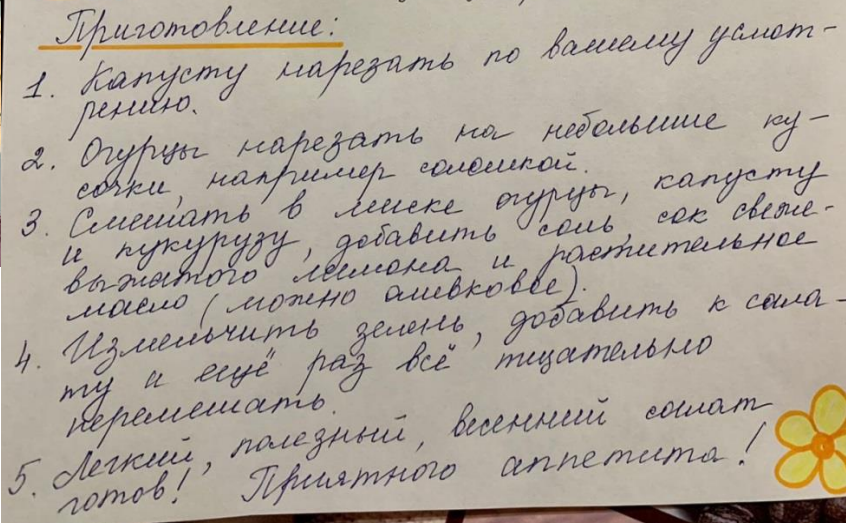 Приготовление:
1. Капусту нарезать по вашему усмот-
рению.
2. Огурцы нарезать на небольшие ку-
сочки, например соломкой.
3. Смешать в миске огурцы, капусту
и кукурузу, добавить соль, сок свеже-
выжатого лимона и растительное
масло (можно оливковое).
4. Измельчить зелень, добавить к сала-
ту и ещё раз всё тщательно
перемешать.
5. Легкий, полезный, весенний салат
готов! Приятного аппетита!